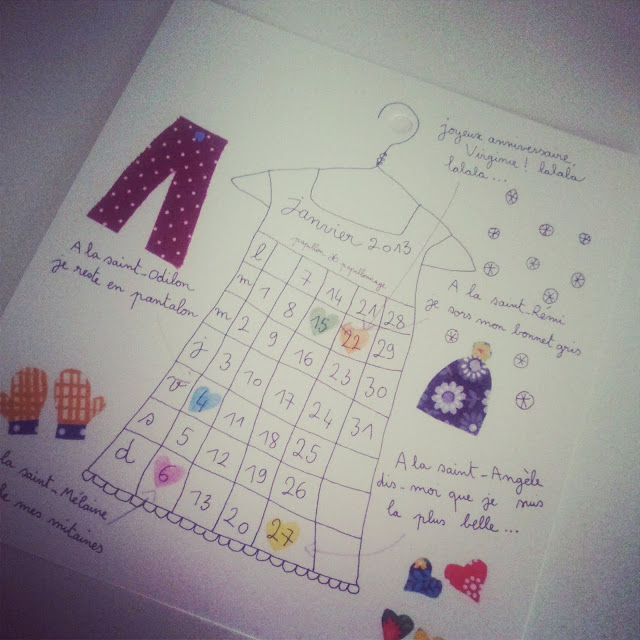 joyeux anniversaire,
Virginia ! lalala
lalala...
janvier 2013
l 7 14 21 28
m 1 8 15 22 29
m 2 9 16 23 30
j 3 10 17 24 31
v 4 11 18 25
s 5 12 19 26
d 6 13 20 27
A la saint-Odilon
je reste en pantalon
A la saint-Rémi
je sors mon bonnet gris
la saint-Mélaine
mes mitaines
A la saint-Angèle
dis-moi que je suis
la plus belle...